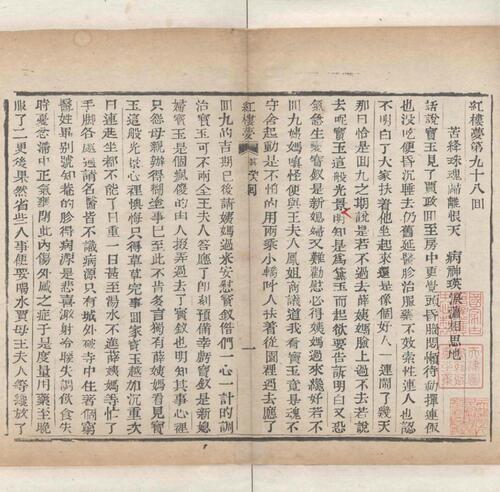 紅樓夢第九十八回
苦絳珠魂歸離恨天 病神瑛淚灑相思地
話說寶玉見了賈政回至房中更覺頭昏腦悶懶待動彈連飯
也沒吃便昏沉睡去仍舊延醫胗治服藥不效索性連人也認
不明白了大家扶着他坐起來還是像個好人一連鬧了幾天
那日恰是回九之期說是若不過去薛姨媽臉上過不去若說
去呢寶玉這般光景明知是為黛玉而起欲要告訴明白又恐
氣急生變寶釵是新媳婦又難勸慰必得姨媽過來纔好若不
回九姨媽嗔怪便與王夫人鳳姐商議道我看寶玉竟是魂不
守舍起動是不怕的用兩乘小轎叫人扶着從園裡過去應了
紅樓夢 回 一
回九的吉期已後請姨媽過來安慰寶釵偺們一心一計的調
治寶玉可不兩全王夫人答應了卽刻預備幸虧寶釵是新媳
婦寶玉是個瘋傻的由人掇弄過去了寶釵也明知其事心裡
只怨母親辦得糊塗事已至此不肯多言獨有薛姨媽看見寶
玉這般光景心裡懊悔只得草草完事回家寶玉越加沉重次
日連起坐都不能了日重一日甚至湯水不進薛姨媽等忙了
手腳各處遍請名醫皆不識病源只有城外破寺中住着個窮
醫姓畢別號知菴的胗得病源是悲喜激射冷暖失調飲食失
時憂忿滯中正氣壅閉此內傷外感之症于是度量用藥至晚
服了二更後果然省些人事便要喝水賈母王夫人等纔放了